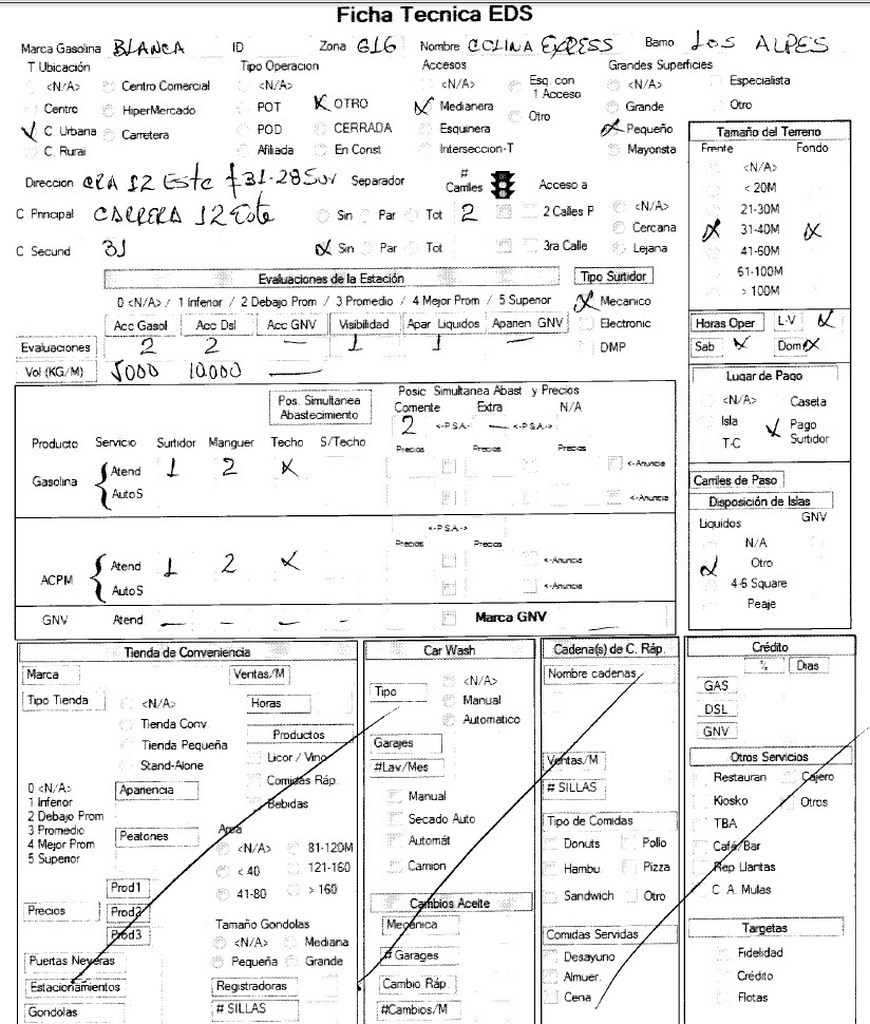 Ficha Tecnica EDS
Marca Gasolina BLANCA ID Zona G16 Nombre COLINA EXPRESS Barrio LOS ALPES
T Ubicación Tipo Operacion Accesos Grandes Superficies
<N/A> Centro Comercial <N/A> <N/A> Esq. con 1 Acceso <N/A> Especialista
Centro HiperMercado POT OTRO Medianera Otro Grande Otro
C. Urbana Carretera POD CERRADA Esquinera Pequeño
C. Rural Afiliada En Const Interseccion-T Mayorista
Tamaño del Terreno
Frente Fondo
<N/A>
< 20M
21-30M
31-40M
41-60M
61-100M
> 100M
Direccion CRA 12 Este # 31-28 Sur Separador # Carriles Acceso a
C Principal CARRERA 12 Este Sin Par Tot 2 2 Calles P <N/A>
Cercana
C Secund 31 Sin Par Tot 3ra Calle Lejana
Evaluaciones de la Estación Tipo Surtidor
0 <N/A> / 1 Inferior / 2 Debajo Prom / 3 Promedio / 4 Mejor Prom / 5 Superior Mecanico
Acc Gasol Acc Dsl Acc GNV Visibilidad Apar Liquidos Aparien GNV Electronic
Evaluaciones 2 2 — 1 1 — DMP
Vol (KG/M) 5000 10.000 —
Horas Oper L-V
Sab Dom
Lugar de Pago
<N/A> Caseta
Isla Pago Surtidor
T-C
Pos. Simultanea Abastecimiento Posic Simultanea Abast y Precios
Corriente Extra N/A
2 <-P.S.A.-> — <-P.S.A.->
Producto Servicio Surtidor Manguer Techo S/Techo Precios Precios Precios
Gasolina Atend 1 2 X <-Anuncia
AutoS <-Anuncia
<-P.S.A.->
Precios Precios
ACPM Atend 1 2 X <-Anuncia
AutoS <-Anuncia
GNV Atend — — — - Marca GNV
Carriles de Paso
Disposición de Islas
Liquidos GNV
N/A
Otro
4-6 Square
Peaje
Tienda de Conveniencia
Marca Ventas/M
Tipo Tienda <N/A> Horas
Tienda Conv.
Tienda Pequeña
Stand-Alone
Productos
Licor / Vino
Comidas Ráp.
Bebidas
0 <N/A>
1 Inferior
2 Debajo Prom
3 Promedio
4 Mejor Prom
5 Superior
Apariencia
Peatones
Area
<N/A> 81-120M
< 40 121-160
41-80 > 160
Precios Prod1
Prod2
Prod3
Tamaño Gondolas
<N/A> Mediana
Pequeña Grande
Puertas Neveras
Estacionamientos
Gondolas
Registradoras
# SILLAS
Car Wash
Tipo <N/A>
Manual
Automatico
Garajes
#Lav/Mes
Manual
Secado Auto
Automát
Camion
Cambios Aceite
Mecánica
# Garages
Cambio Ráp.
#Cambios/M
Cadena(s) de C. Ráp.
Nombre cadenas.
Ventas/M
# SILLAS
Tipo de Comidas
Donuts Pollo
Hambu. Pizza
Sandwich Otro
Comidas Servidas
Desayuno
Almuer.
Cena
Crédito
% Dias
GAS
DSL
GNV
Otros Servicios
Restauran Cajero
Kiosko Otros
TBA
Café/Bar
Rep Llantas
C. A. Mulas
Targetas
Fidelidad
Crédito
Flotas